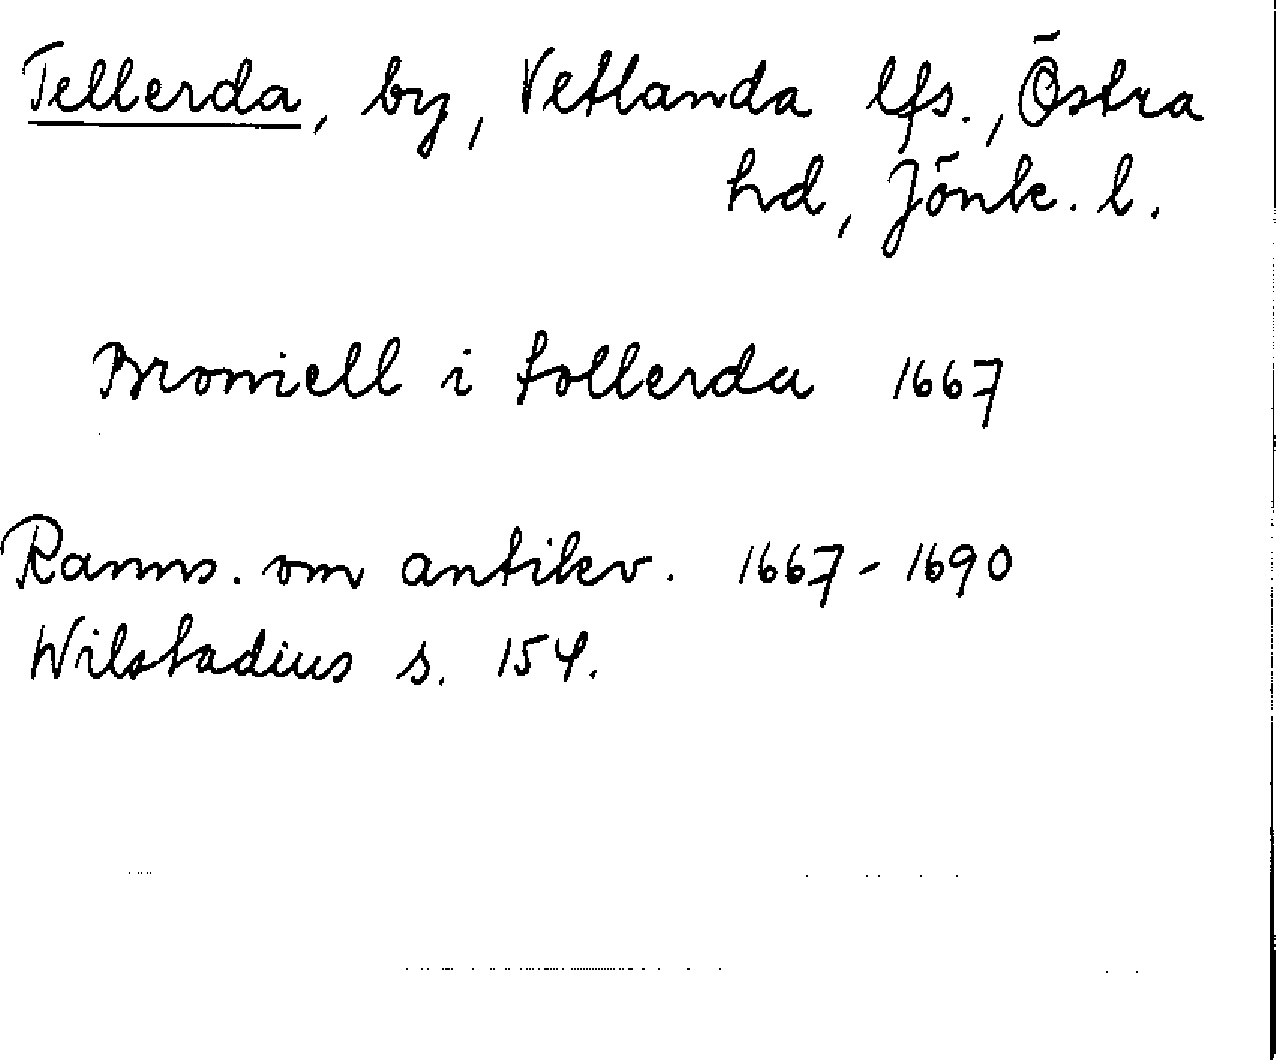 Tellerda, by, Vetlanda lfs., Östra
hd, Jönk. l.
Broniell i tollerda 1667
Ranns. om antikv. 1667-1690
Wilstadius s. 154.